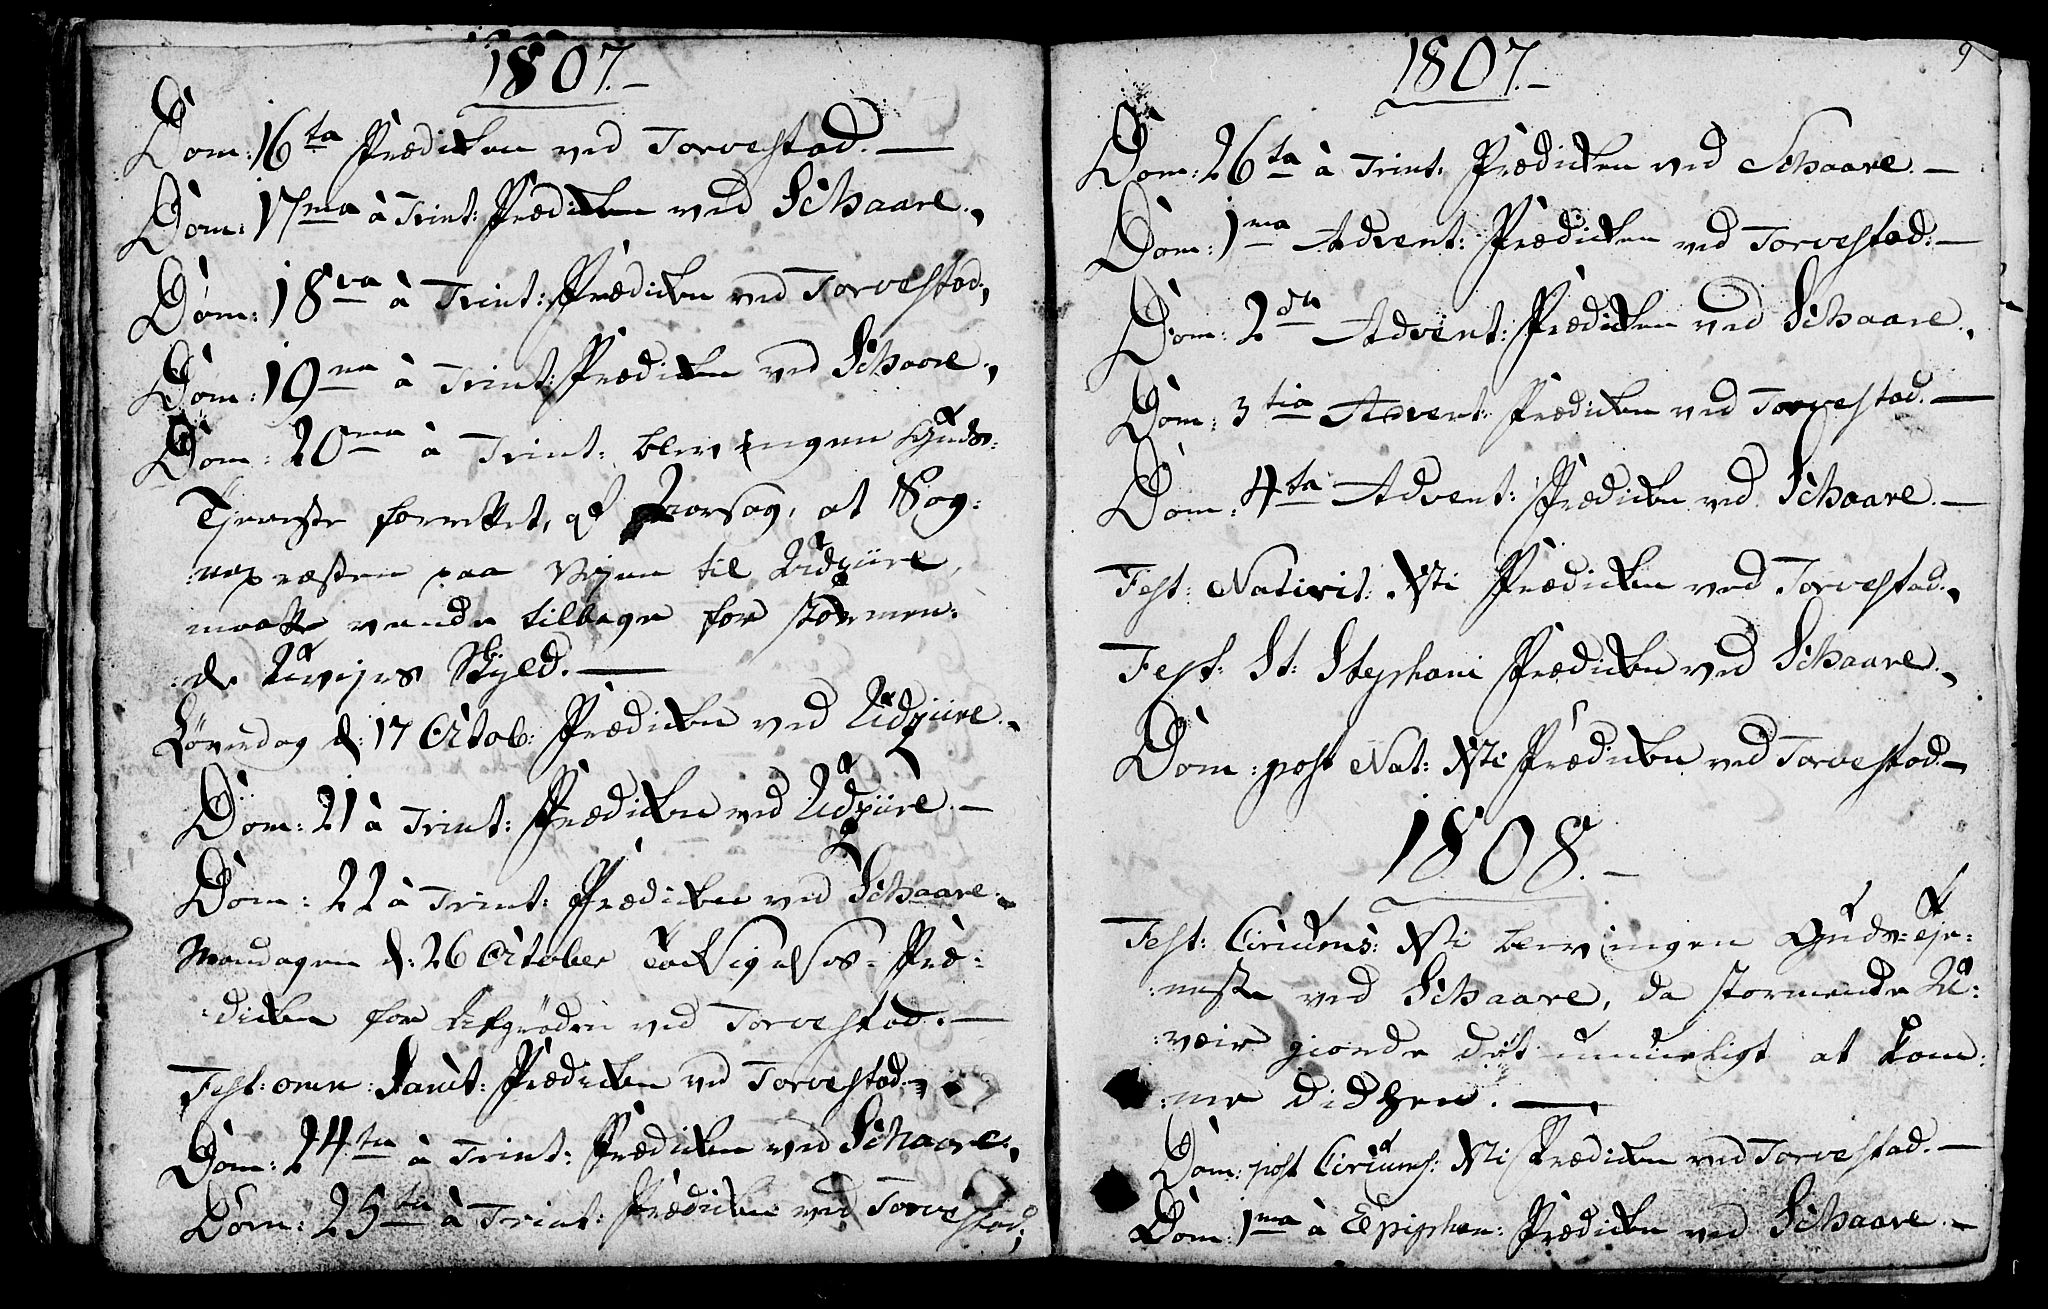 1807.-
Dom: 16ta Prædiken ved Torvestad.-
Dom: 17ma à Trint: Prædiken ved Schaare.,
Dom: 18va à Trint: Prædiken ved Torvestad.,
Dom: 19na à Trint: Prædiken ved Schaare.,
Dom: 20ma à Trint: blev ingen Guds-
Tjeneste forrettet, af Aarsag, at Sog:
:nepræsten paa Vejen til Udziire,
maatte vende tilbage for stormen:
:de Uvejrs Skyld.-
Löverdag d: 17 Octob: Prædiken ved Udziire.,
Dom: 21 à Trint: Prædiken ved Udziire.-
Dom: 22 à Trint: Prædiken ved Schaare.
Mandagen d: 26 October Tacksigelses-Præ:
:diken for Afgröden ved Torvestad.-
Fest: omn: Sanct: Prædiken ved Torvestad.,
Dom: 24ta à Trint: Prædiken ved Schaare.,
Dom: 25ta à Trint: Prædiken ved Torvestad.,
1807.-
9
Dom: 26ta à Trint: Prædiken ved Schaare.-
Dom: 1ma Advent: Prædiken ved Torvestad.-
Dom: 2da Advent: Prædiken ved Schaare.,
Dom: 3tia Advent: Prædiken ved Torvestad.-
Dom: 4ta Advent: Prædiken ved Schaare.-
Fest: Nativit: Xti Prædiken ved Torvestad.,
Fest: St: Stephani Prædiken ved Schaare.,
Dom: post Nat: Xti Prædiken ved Torvestad.-
1808.-
Fest: Circums: Xti blev ingen Guds-Tje:
:neste ved Schaare, da stormende U:
:veir giorde det umueligt at kom:
:me didhen.-
Dom: post Circums: Xti Prædiken ved Torvestad.-
Dom: 1ma à Epiphan: Prædiken ved Schaare.-